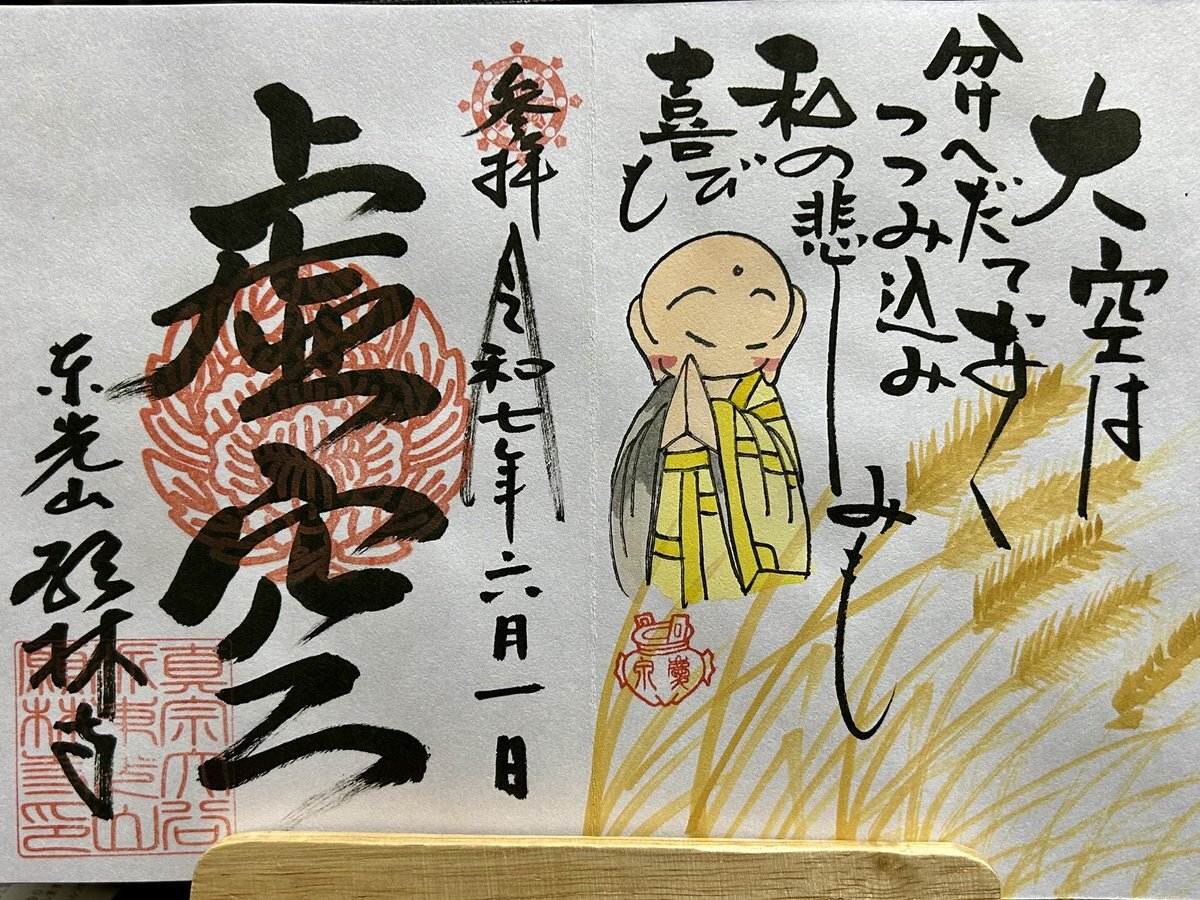 大空は
分けへだてなく
つつみ込み
私の悲しみも
喜びも
参拝
令和七年六月一日
虚空
東光山 願林寺
真宗大谷